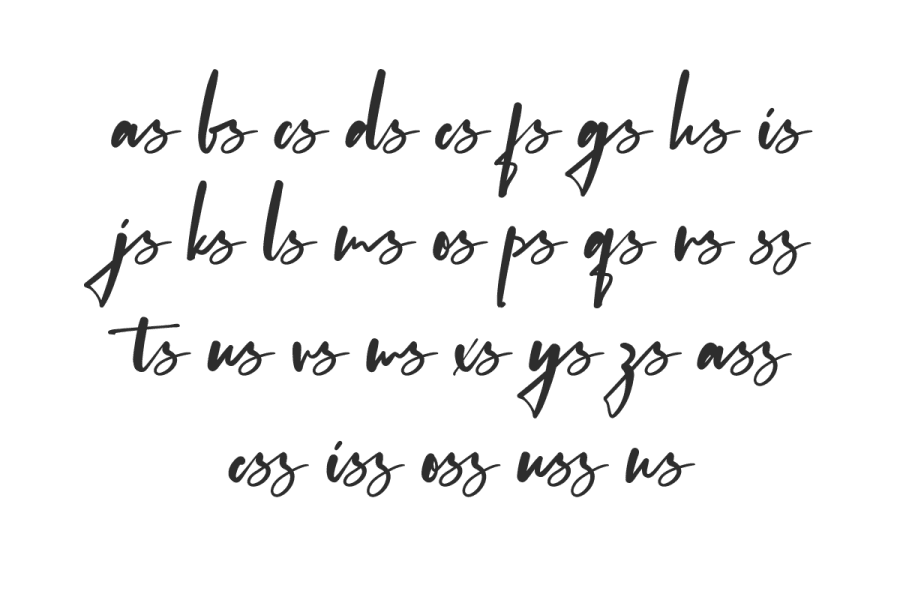 as bs cs ds es fs gs hs is
js ks ls ms os ps qs rs ss
ts us vs ws xs ys zs ass
ess iss oss uss ns